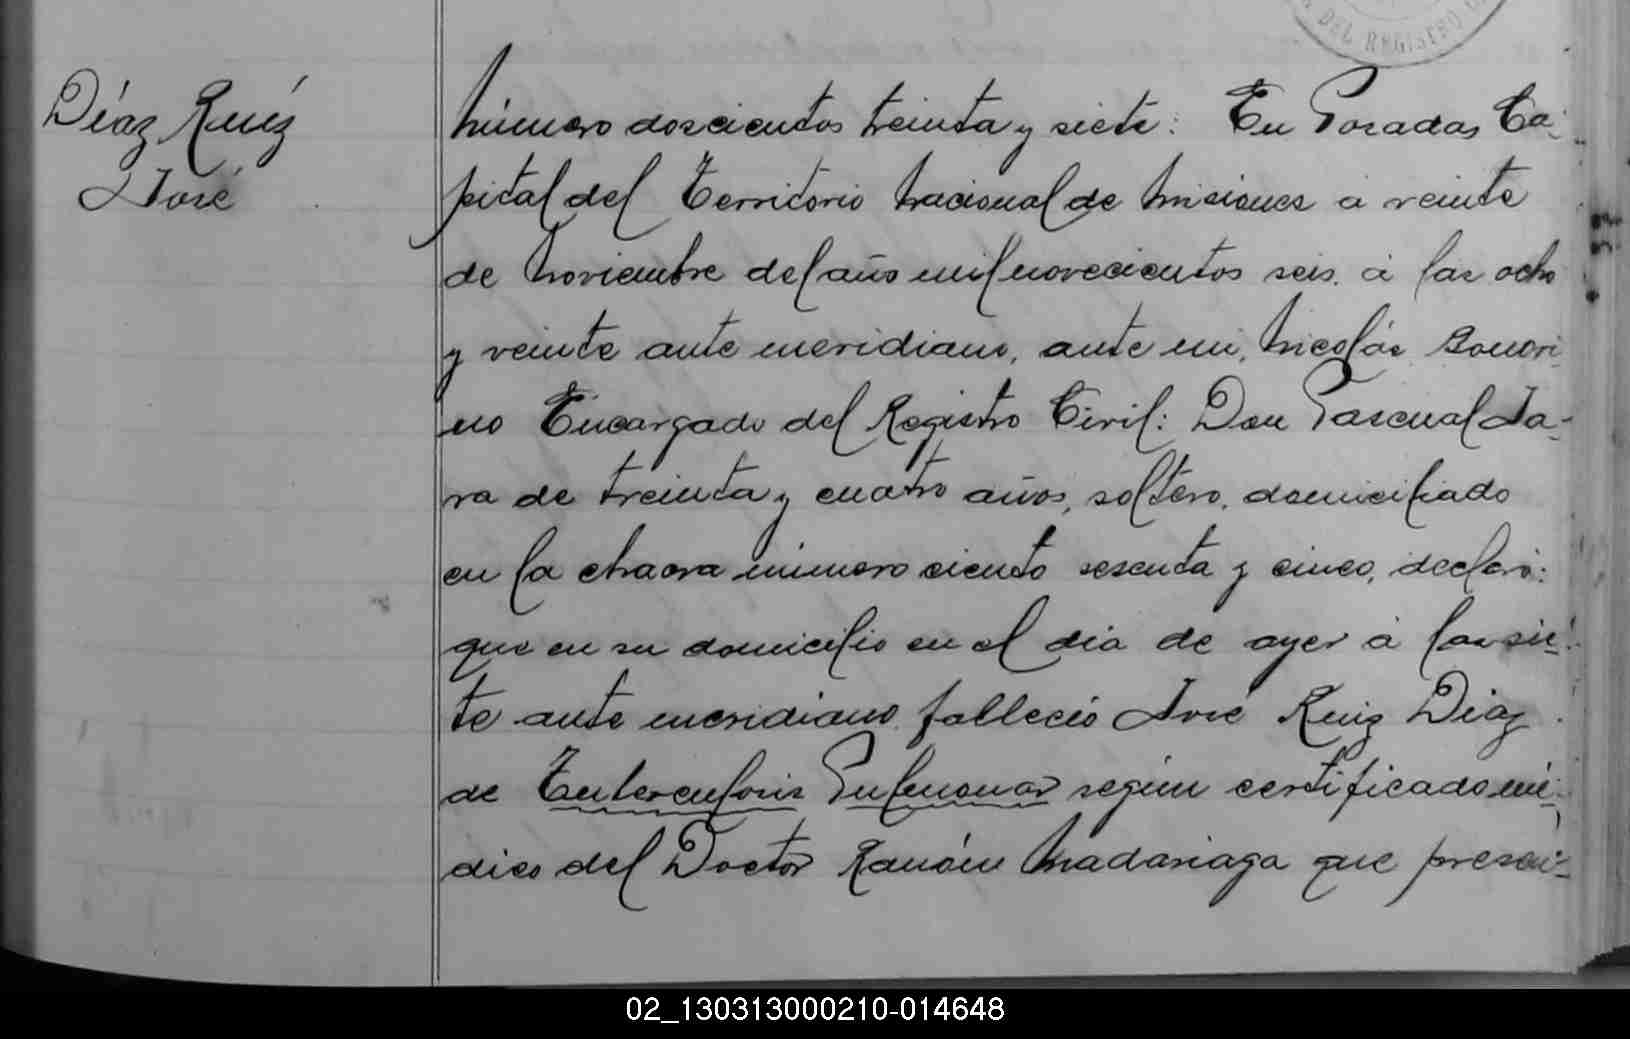 DEL REGISTRO
Díaz Ruíz
José
Número doscientos treinta y siete: En Posadas Ca-
pital del Territorio Nacional de Misiones a veinte
de Noviembre del año mil novecientos seis. á las ocho
y veinte ante meridiano, ante mi, Nicolás Bonori
no Encargado del Registro Civil: Don Pascual Ja-
ra de treinta y cuatro años, soltero, domiciliado
en la chacra número ciento sesenta y cinco, declaró:
que en su domicilio en el dia de ayer á las sie-
te ante meridiano falleció José Ruiz Diaz
de Tuberculosis Pulmonar según certificado mé-
dico del Doctor Ramón Madariaga que presen-
02_130313000210-014648